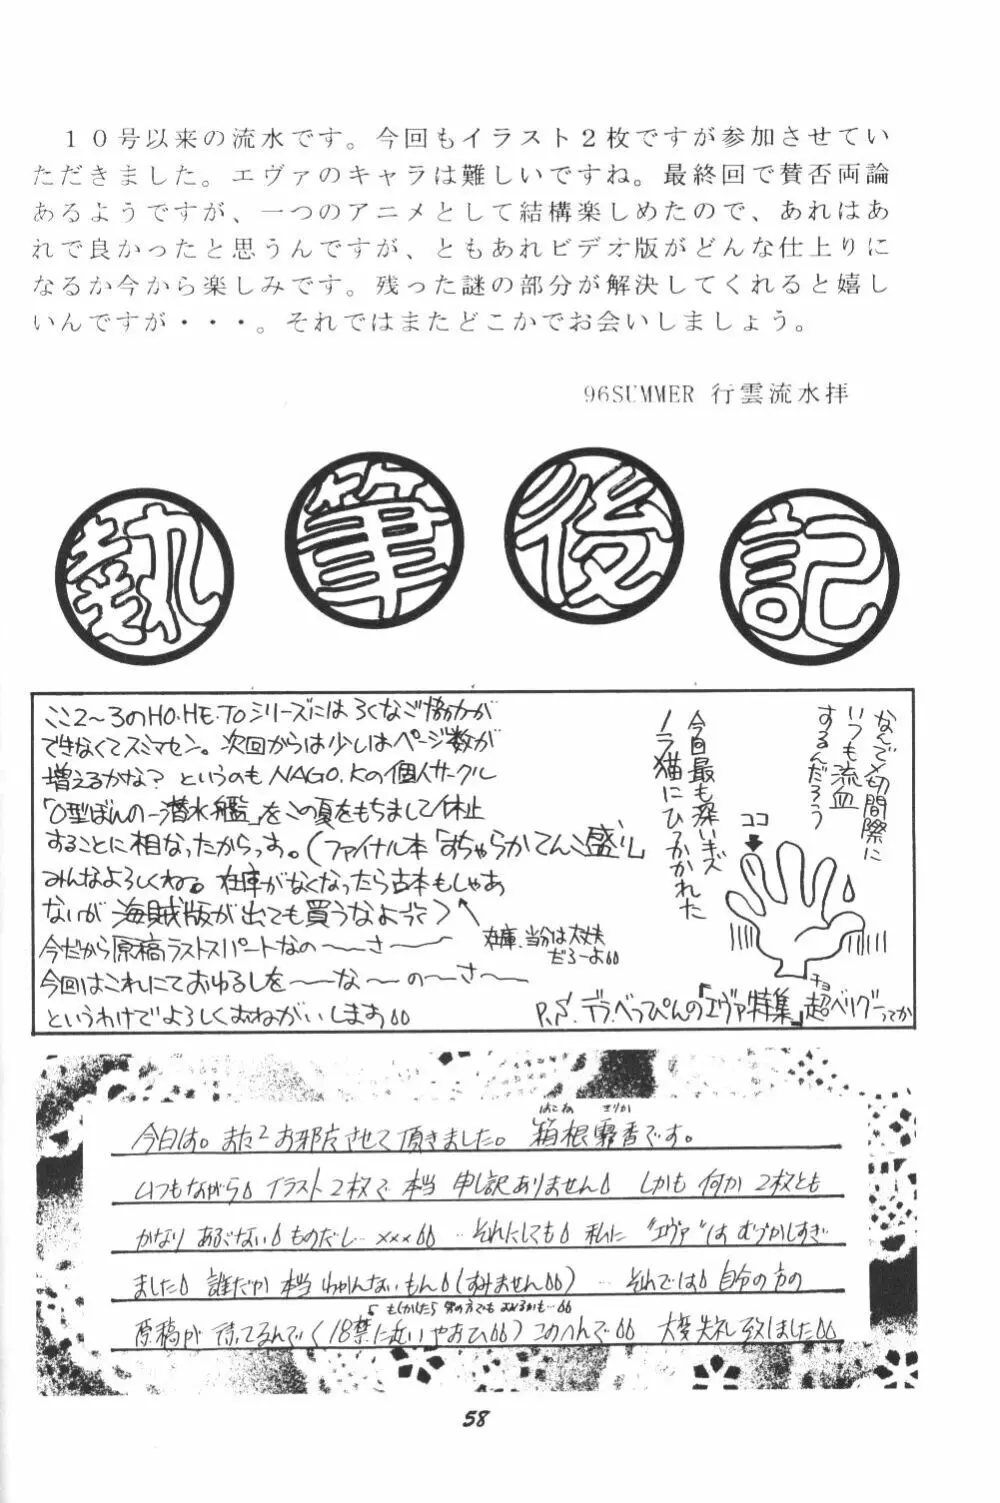 １０号以来の流水です。今回もイラスト２枚ですが参加させてい
ただきました。エヴァのキャラは難しいですね。最終回で賛否両論
あるようですが、一つのアニメとして結構楽しめたので、あれはあ
れで良かったと思うんですが、ともあれビデオ版がどんな仕上りに
なるか今から楽しみです。残った謎の部分が解決してくれると嬉し
いんですが・・・。それではまたどこかでお会いしましょう。
96SUMMER 行雲流水拝
執筆後記
ここ2〜3のHO・HE・TOシリーズにはろくなご協力が
できなくてスミマセン。次回からは少しはページ数が
増えるかな? というのもNAGO.Kの個人サークル
「O型ぼんの一潜水艦」をこの夏をもちまして休止
することに相なったからっす。(ファイナル本「おちゃらかてんこ盛り」
みんなよろしくねる。在庫がなくなったら古本もしゃあ
ないが海賊版が出ても買うなよって)
在庫、当分は大丈夫
だろーよ
今だから原稿ラストスパートなの〜〜さ〜〜
今回はこれにておゆるしを〜〜な〜の〜さ〜
というわけでよろしくおねがいします
なんで〆切間際に
いつも流血
するんだろう
今回最も深いキズ
ノラ猫にひっかかれた
ココ
P.S. デラべっぴんの「エヴァ特集」超ベリグーってか
チョ
はこね
今日は。また2お邪魔させて頂きました。箱根霧香です。
いつもながらイラスト2枚で本当申し訳ありません しかも何か2枚とも
かなりあぶないものだし…×××…それにしても 私に"エヴァ"はむづかしすぎ
ました 誰だか本当わかんないもん(すみません)…それでは 自分の方の
もしかしたら男の方でもおるかも…
原稿が待ってるんで(18禁に近いやおひ)このへんで 大変失礼致しました
58